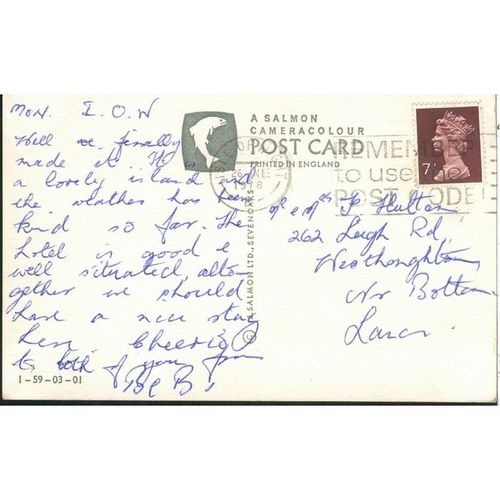 MON. I.O.W
Well we finally
made it. It is
a lovely island and
the weather has been
kind so far. The
hotel is good &
well situated, alto-
gether we should
have a nice stay
here Cheerio
to both of you from
B & B
1-59-03-01
A SALMON
CAMERACOLOUR
POST CARD
PRINTED IN ENGLAND
© J. SALMON LTD., SEVENOAKS
26 JNE
1978
REMEMBER
to use the
POST CODE
7P
Mr & Mrs F Hulton
262 Leigh Rd,
Westhoughton,
Nr Bolton
Lancs.